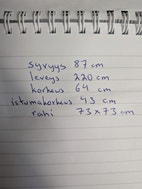 syvyys 87 cm
leveys 220 cm
korkeus 64 cm
istumakorkeus 43 cm
rahi 73x73 cm